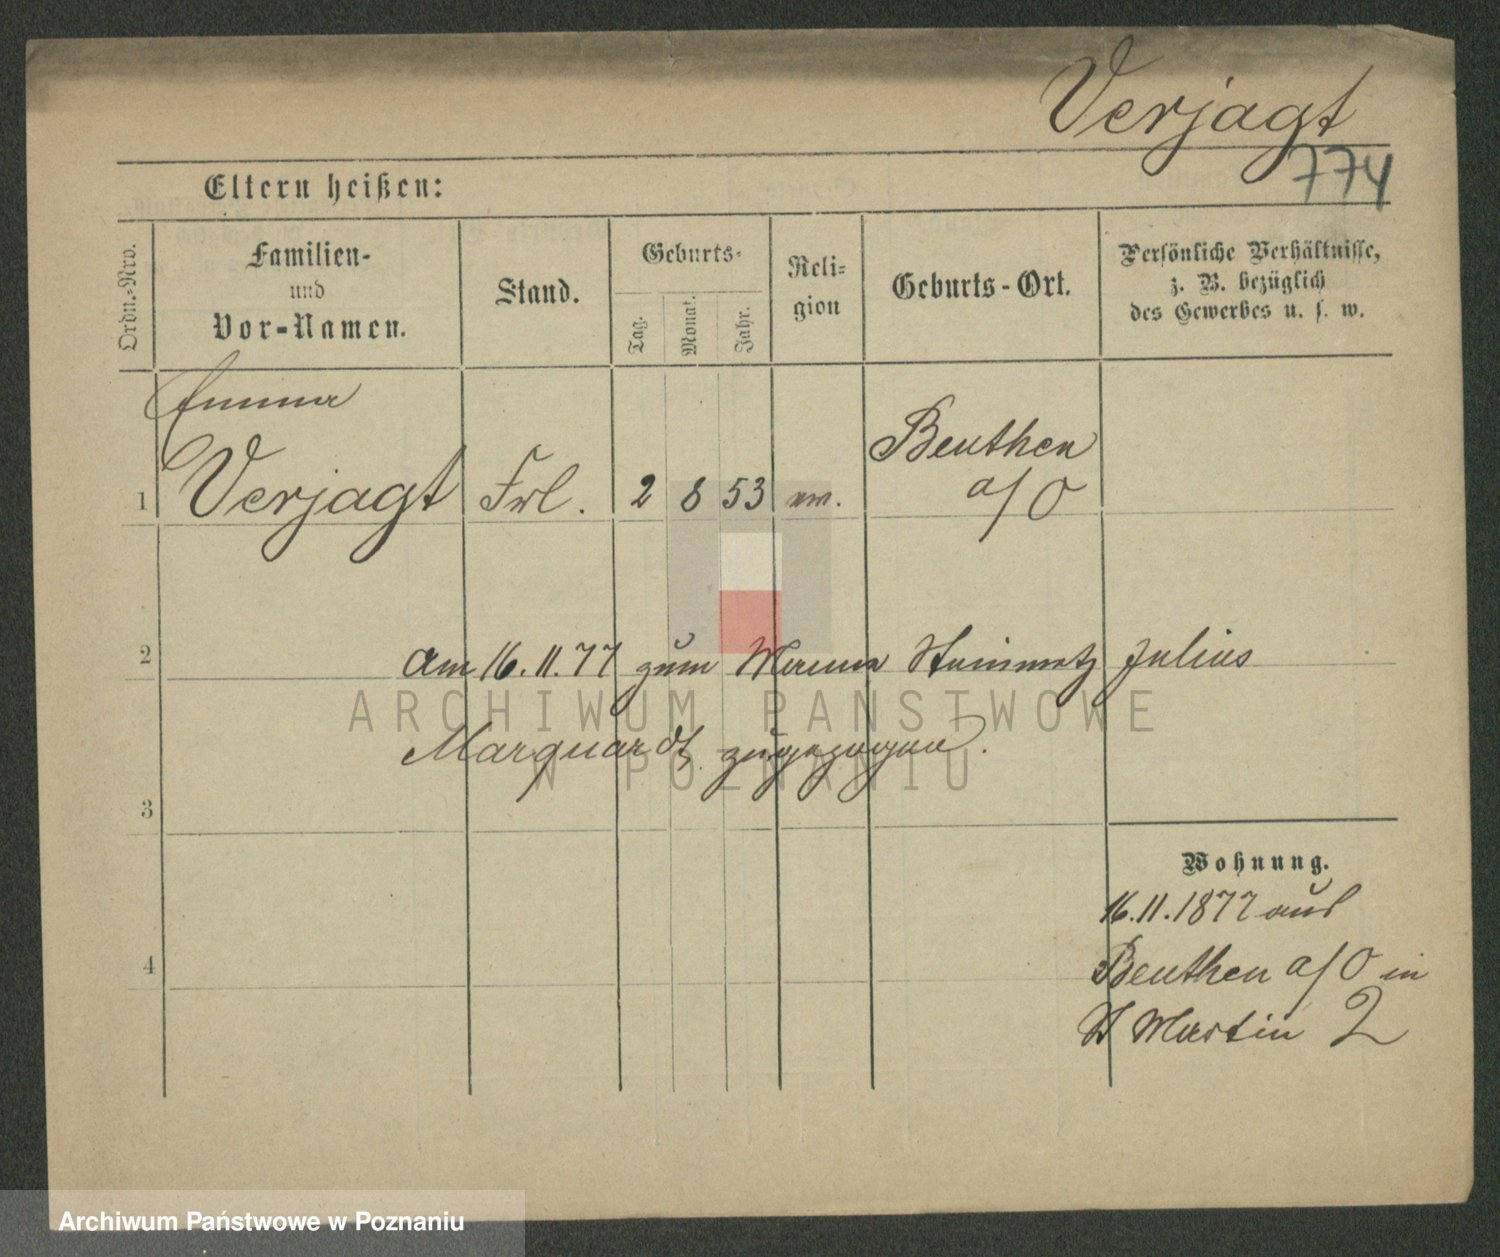 Verjagt
774
Eltern heißen:
Ordn.-Nro.
Familien-
und
Vor-Namen.
Stand.
Geburts-
Tag.
Monat.
Jahr.
Reli-
gion
Geburts-Ort.
Persönliche Verhältnisse,
z. B. bezüglich
des Gewerbes u. s. w.
Emma
1 Verjagt Frl. 2 8 53 ev. Beuthen
a/O
2
am 16.11.77 zum Steinmetz Julius
Marquardt zugezogen.
3
Wohnung.
16.11.1877 aus
4
Beuthen a/O in
St Martin 2
ARCHIWUM PAŃSTWOWE
W POZNANIU
Archiwum Państwowe w Poznaniu